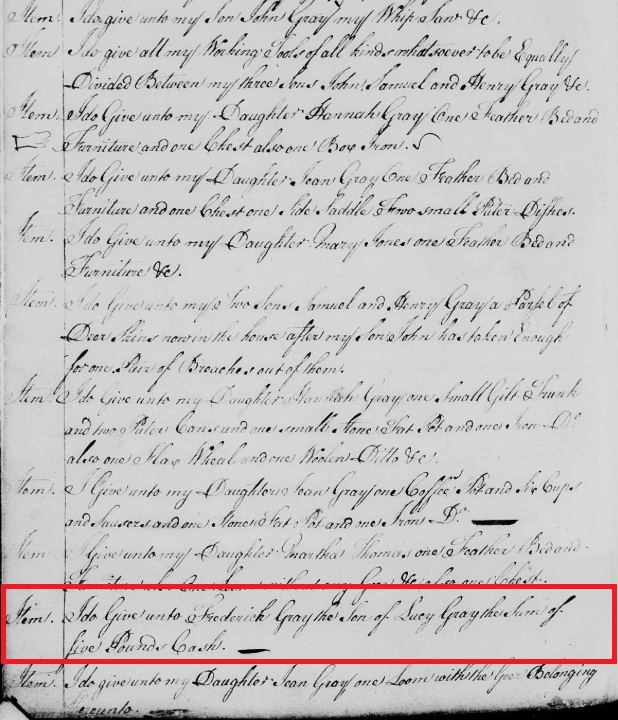 Item. I do give unto my Son John Gray my Whip Saw &c.
Item I do give all my Working Tools of all kinds whatsoever to be Equally
Divided Between my three Sons John, Samuel and Henry Gray &c.
Item. I do Give unto my Daughter Hannah Gray One Feather Bed and
Furniture and one Chest also one Box Iron.
Item. I do Give unto my Daughter Jean Gray One Feather Bed and
Furniture and one Chest one Side Saddle Two small Puter Dishes.
Item. I do Give unto my Daughter Mary Jones one Feather Bed and
Furniture &c.
Item. I do Give unto my Two Sons Samuel and Henry Gray a Parsel of
Deer Skins now in the house after my Son John has taken Enough
for one Pair of Breaches out of them.
Item. I do Give unto my Daughter Hannah Gray one Small Gilt Trunk
and two Puter Cans and one small Stone Fat Pot and one Iron Do.
also one Flax Wheal and one Woolen Ditto &c.
Item. I Give unto my Daughter Jean Gray one Coffee Pot and Six Cups
and Sausers and one Stone Fat Pot and one Iron Do.
Item I Give unto my Daughter Martha Thomas one Feather Bed and
Furniture also One without any &c also one Chest.
Item. I do Give unto Frederick Gray the Son of Lucy Gray the Sum of
five Pounds Cash.
Item. I do give unto my Daughter Jean Gray one Loom with the Geer Belonging